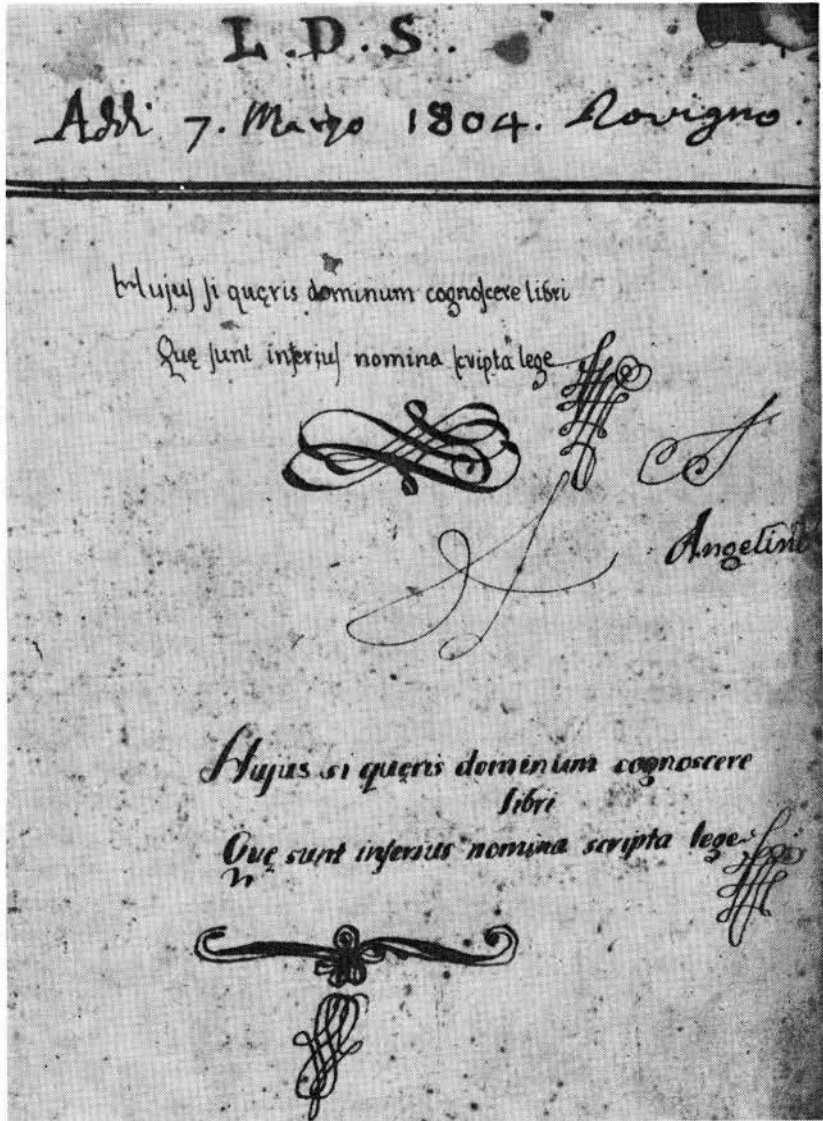 L.D.S.
Addi 7. Marzo 1804. Rovigno.
Hujus si quęris dominum cognoscere libri
Quę sunt inferius nomina scripta lege
Angelini
Hujus si quęris dominum cognoscere
libri
Quę sunt inferius nomina scripta lege